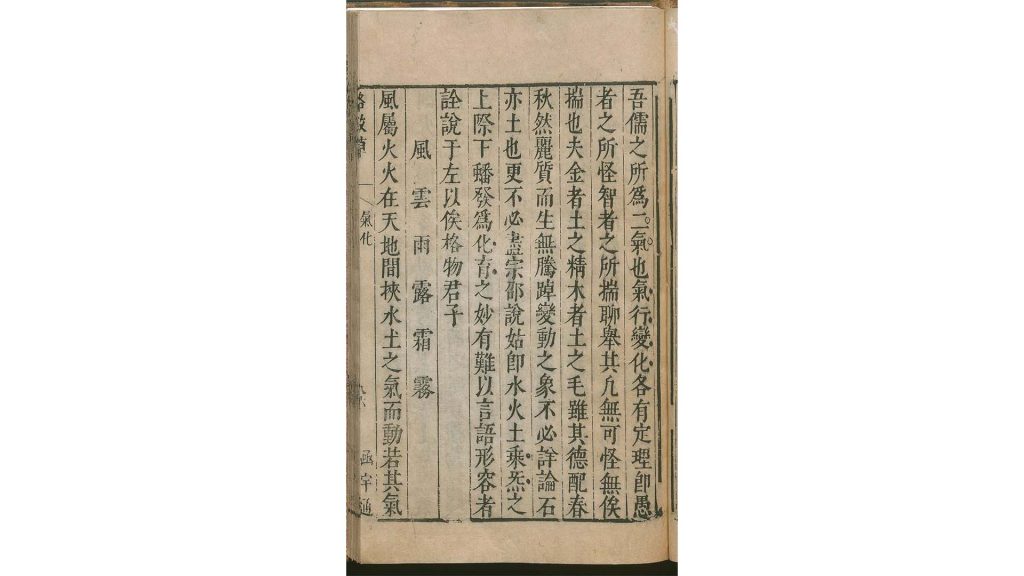 吾儒之所爲二氣也氣行變化各有定理卽愚
者之所怪智者之所揣聊舉其凢無可怪無俟
揣也夫金者土之精木者土之毛雖其德配春
秋然麗質而生無騰踔變動之象不必詳論石
亦土也更不必盡宗邵說姑卽水火土乘炁之
上際下蟠發爲化育之妙有難以言語形容者
詮說于左以俟格物君子
風雲雨露霜霧
風屬火火在天地間挾水土之氣而動若其氣
格致草
氣化
函宇通